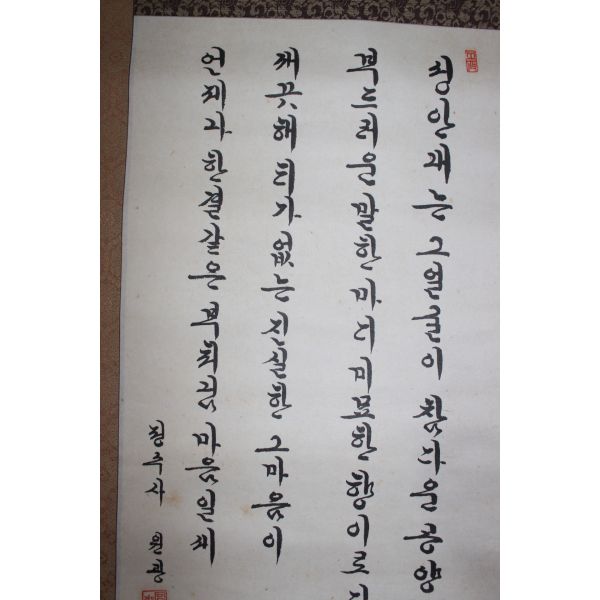 성안내는그얼굴이참다운공양
부드러운말한마디미묘한향이로다
깨끗해티가없는진실한그마음이
언제나한결같은부처님마음일세
청주사 원광